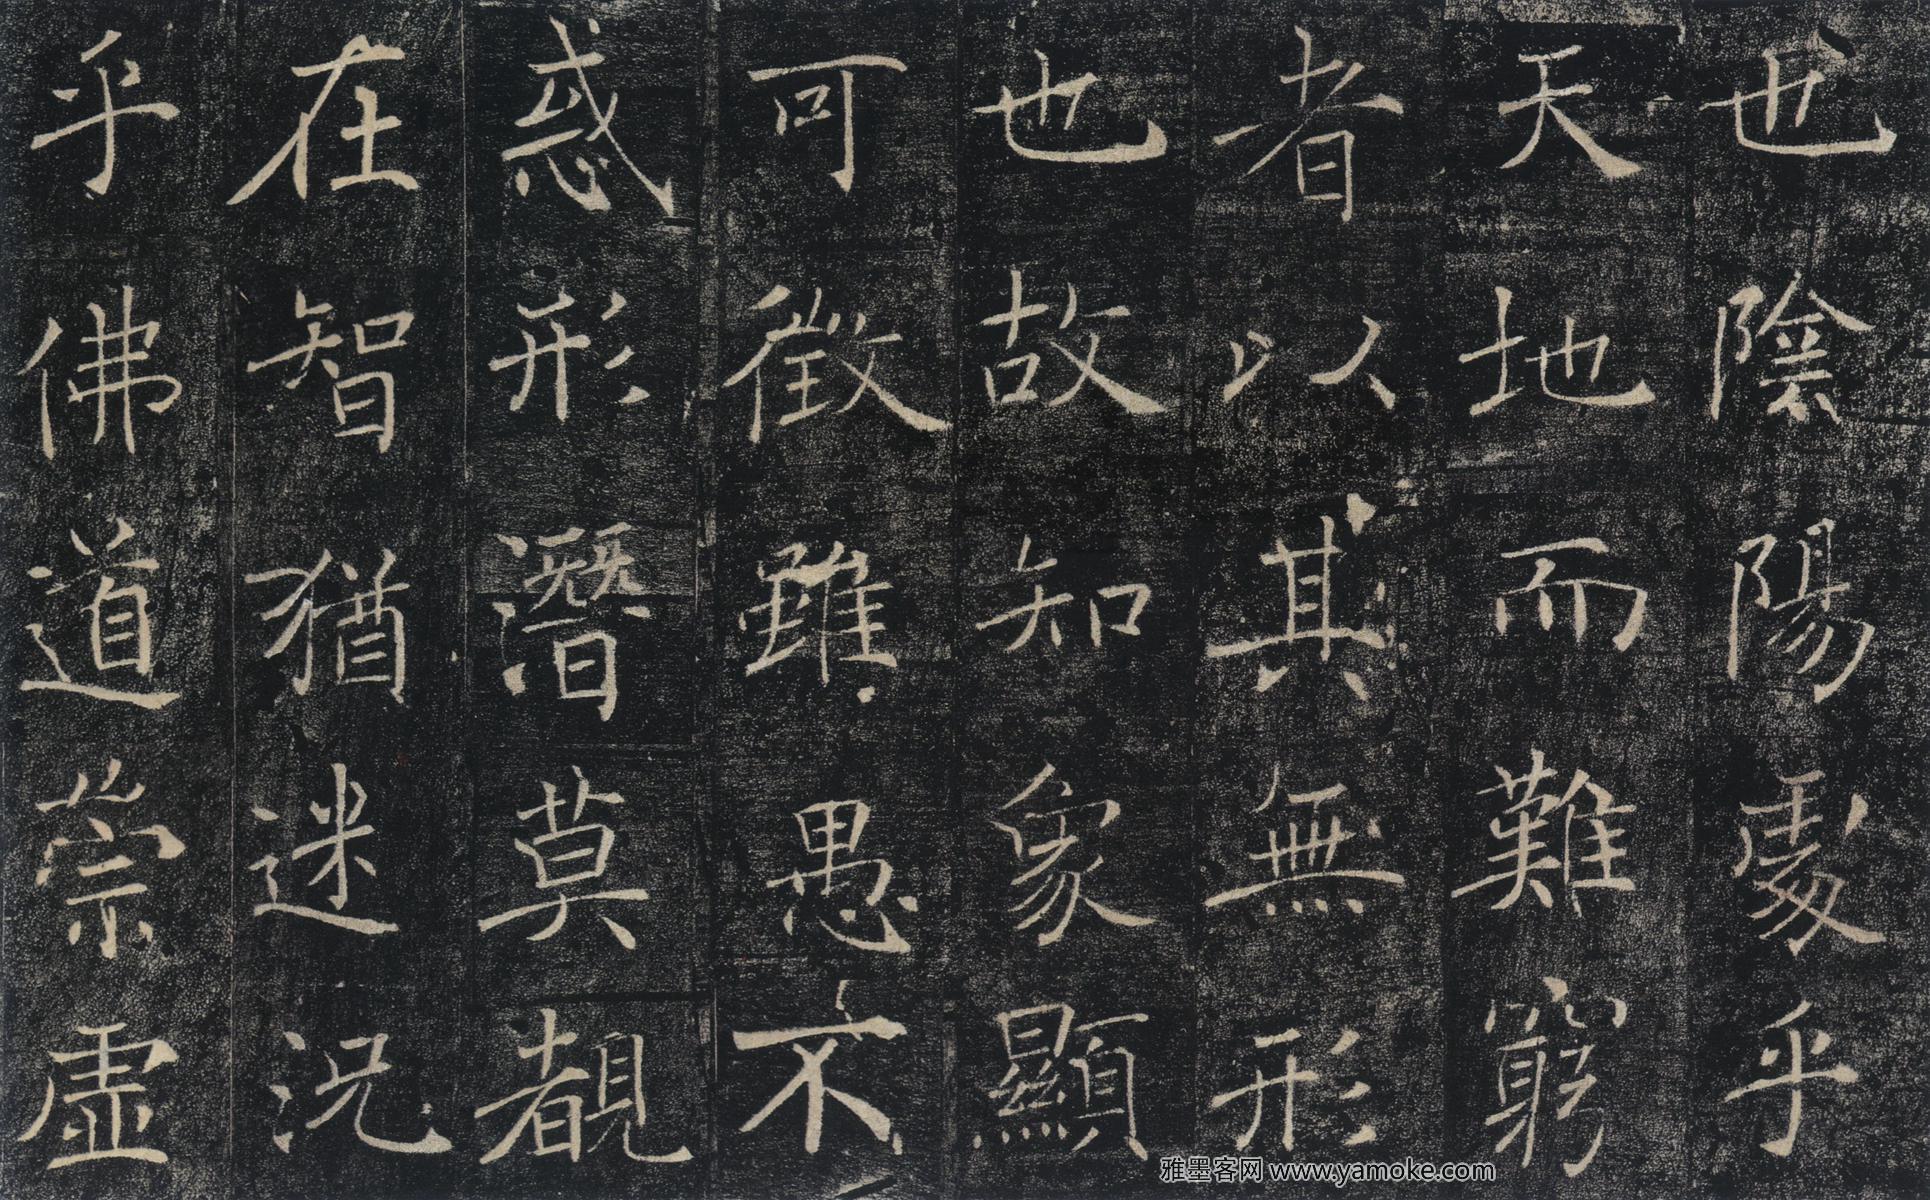 也陰陽處乎
天地而難窮
者以其無形
也故知象顯
可徵雖愚不
惑形潛莫覩
在智猶迷況
乎佛道崇虛
雅墨客网 www.yamoke.com